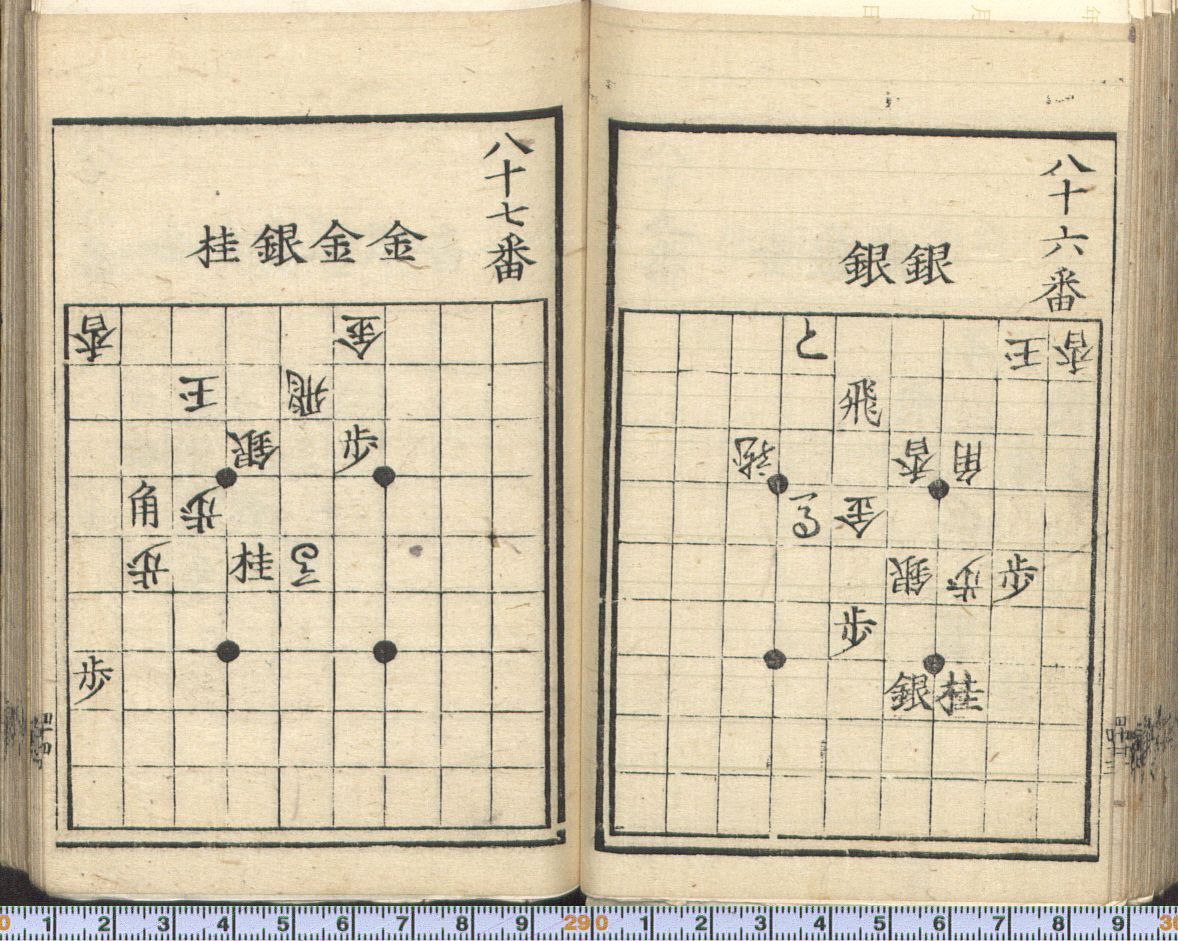 八十六番
銀銀
と 王 香
飛
香 角
馬 金
銀 歩 歩
歩
銀 桂
八十七番
金金銀桂
香 金
王 飛
銀 歩
角 歩
歩 桂 馬
歩
0 1 2 3 4 5 6 7 8 9 29 0 1 2 3 4 5 6 7 8 9 30